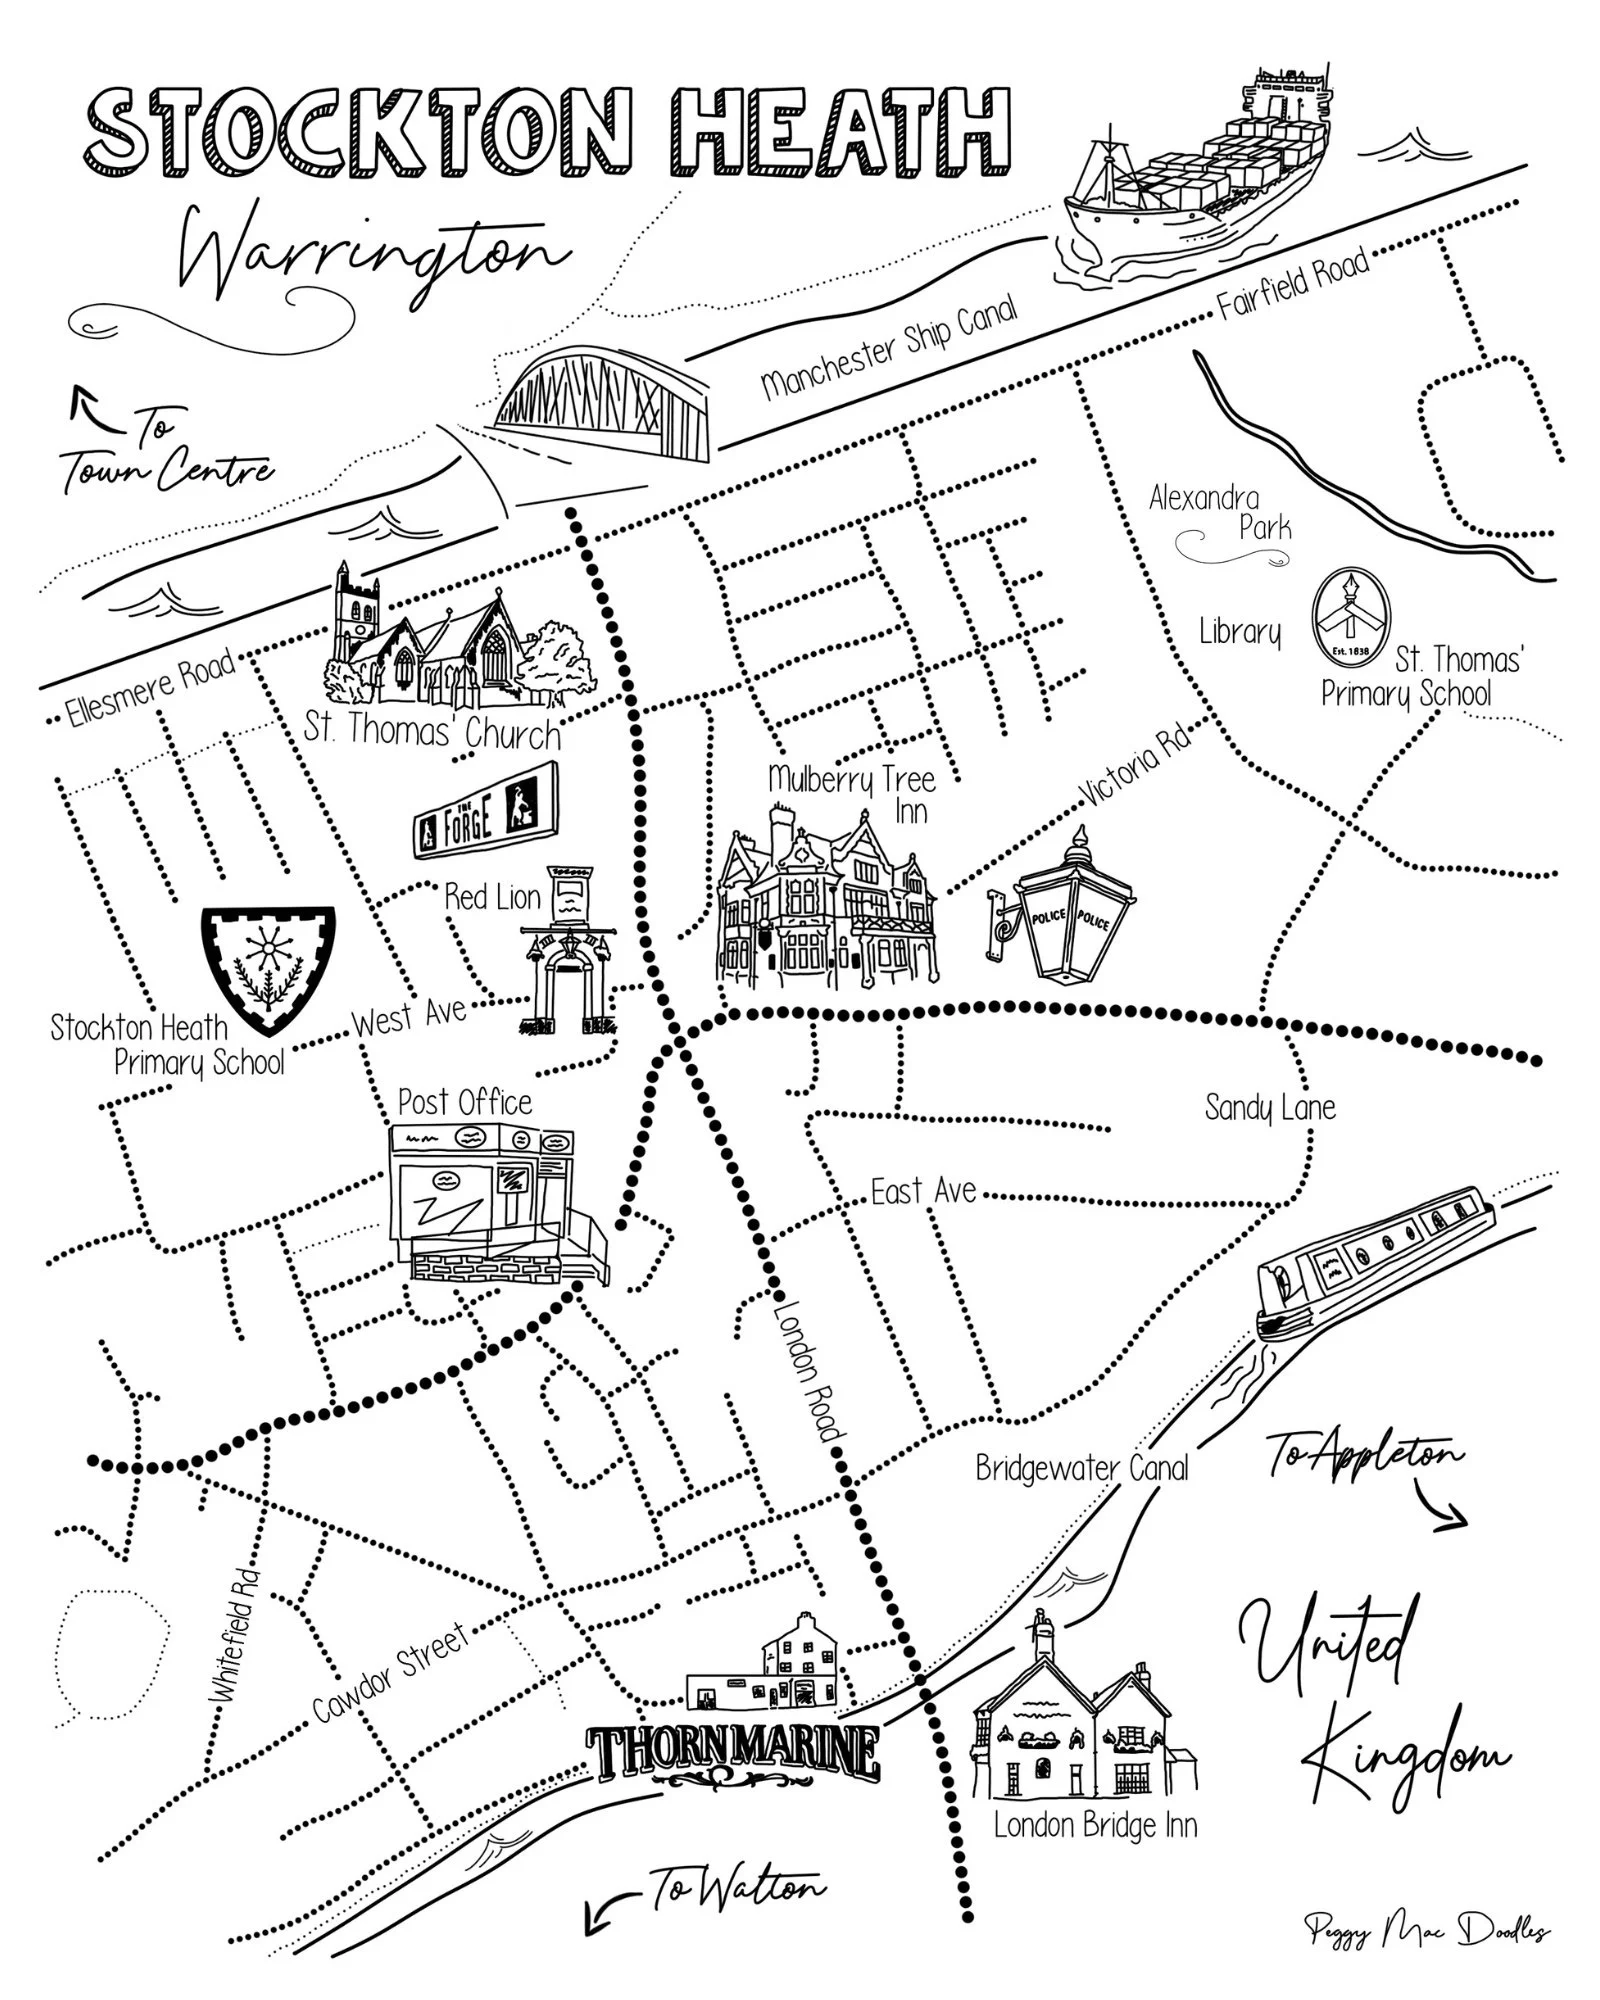 STOCKTON HEATH
Warrington
To
Town Centre
Manchester Ship Canal
Fairfield Road
Alexandra
Park
Library
Est. 1838
St. Thomas'
Primary School
Ellesmere Road
St. Thomas' Church
THE
FORGE
Mulberry Tree
Inn
Victoria Rd
Red Lion
POLICE POLICE
West Ave
Stockton Heath
Primary School
Post Office
Sandy Lane
East Ave
London Road
Bridgewater Canal
To Appleton
Whitefield Rd
Cawdor Street
THORN MARINE
London Bridge Inn
United
Kingdom
To Walton
Peggy Mac Doodles